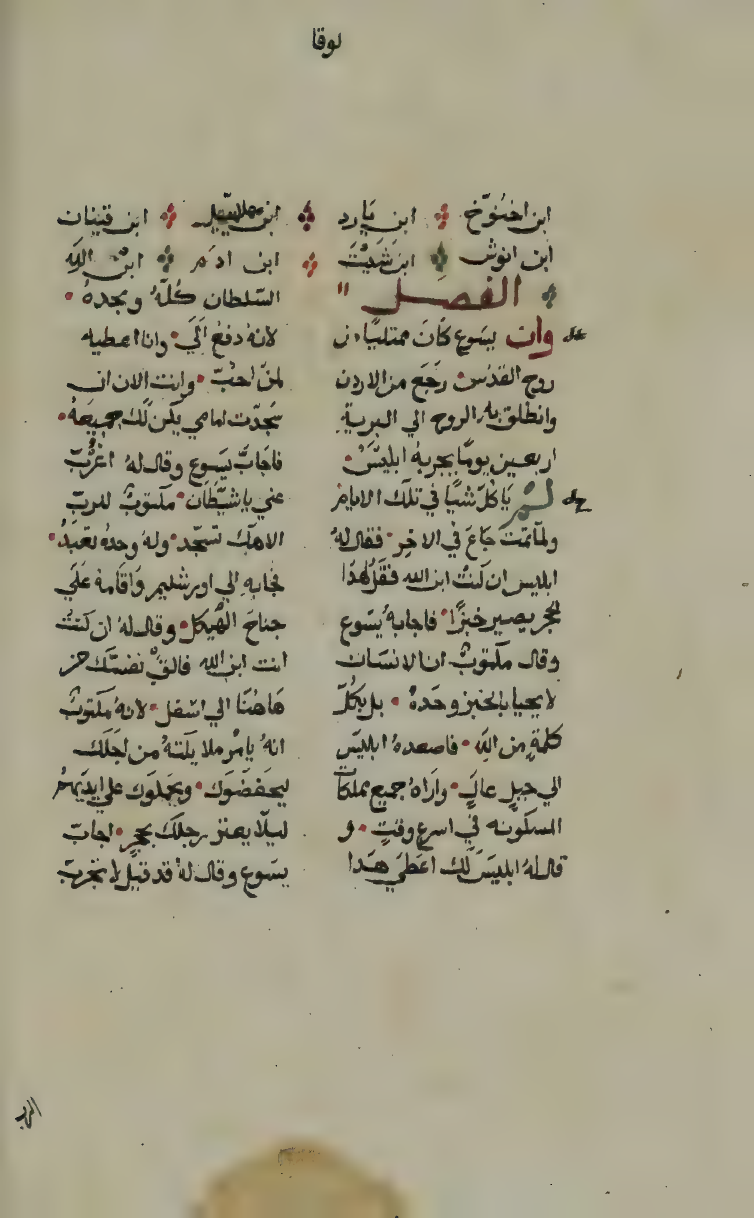 لوقا
ابن اخنوخ ابن يارد ابن مهلالييل ابن قينان
ابن انوش ابن شيت ابن ادم ابن الله
الفصل
وان يسوع كان ممتلياً من
روح القدس رجع من الاردن
وانطلق به الروح الي البرية
اربعين يوماً يجربه ابليس
لم ياكل شيا في تلك الايام
ولما تمت جاع في الاخر فقال له
ابليس ان كنت ابن الله فقل لهذا
الحجر يصير خبزًا فاجابه يسوع
وقال مكتوب ان الانسان
لا يحيا بالخبز وحده بل بكل
كلمة من الله فاصعده ابليس
الي جبل عالٍ واراه جميع مملكات
المسكونه في اسرع وقت و
قال له ابليس لك اعطي هدا
السلطان كله ومجده
لانه دفع الي وانا اعطيه
لمن احب وانت الان ان
سجدت امامي يكن لك جميعه
فاجاب يسوع وقال له اغرب
عني ياشيطان مكتوب للرب
الاهك تسجد وله وحده تعبد
فجابه الي اورشليم واقامه علي
جناح الهيكل وقال له ان كنت
انت ابن الله فالق نفسك من
هاهنا الي اسفل لانه مكتوب
انه يامر ملايكته من اجلك
ليحفضوك ويحملوك علي ايديهم
ليلا يعثر رجلك بحجر اجاب
يسوع وقال له قد قيل لا تجرب
الرب